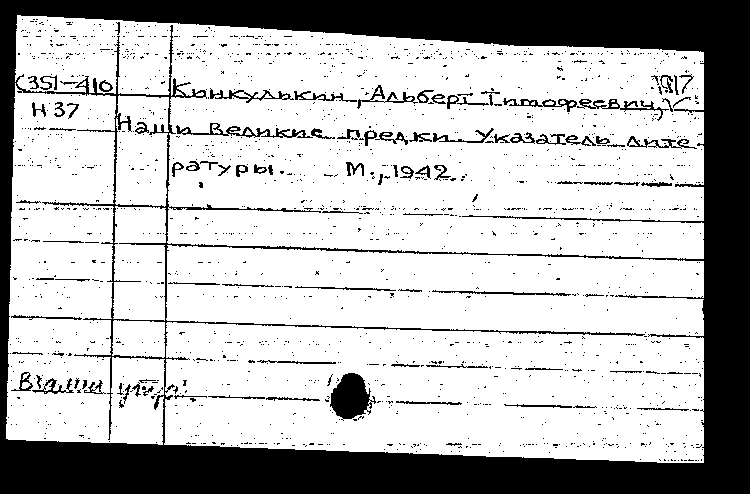 С351-410
1817
Кинкулькин, Альберт Тимофеевич,
Н 37
Наши великие предки. Указатель лите-
ратуры. М., 1942.
Взамен утер.